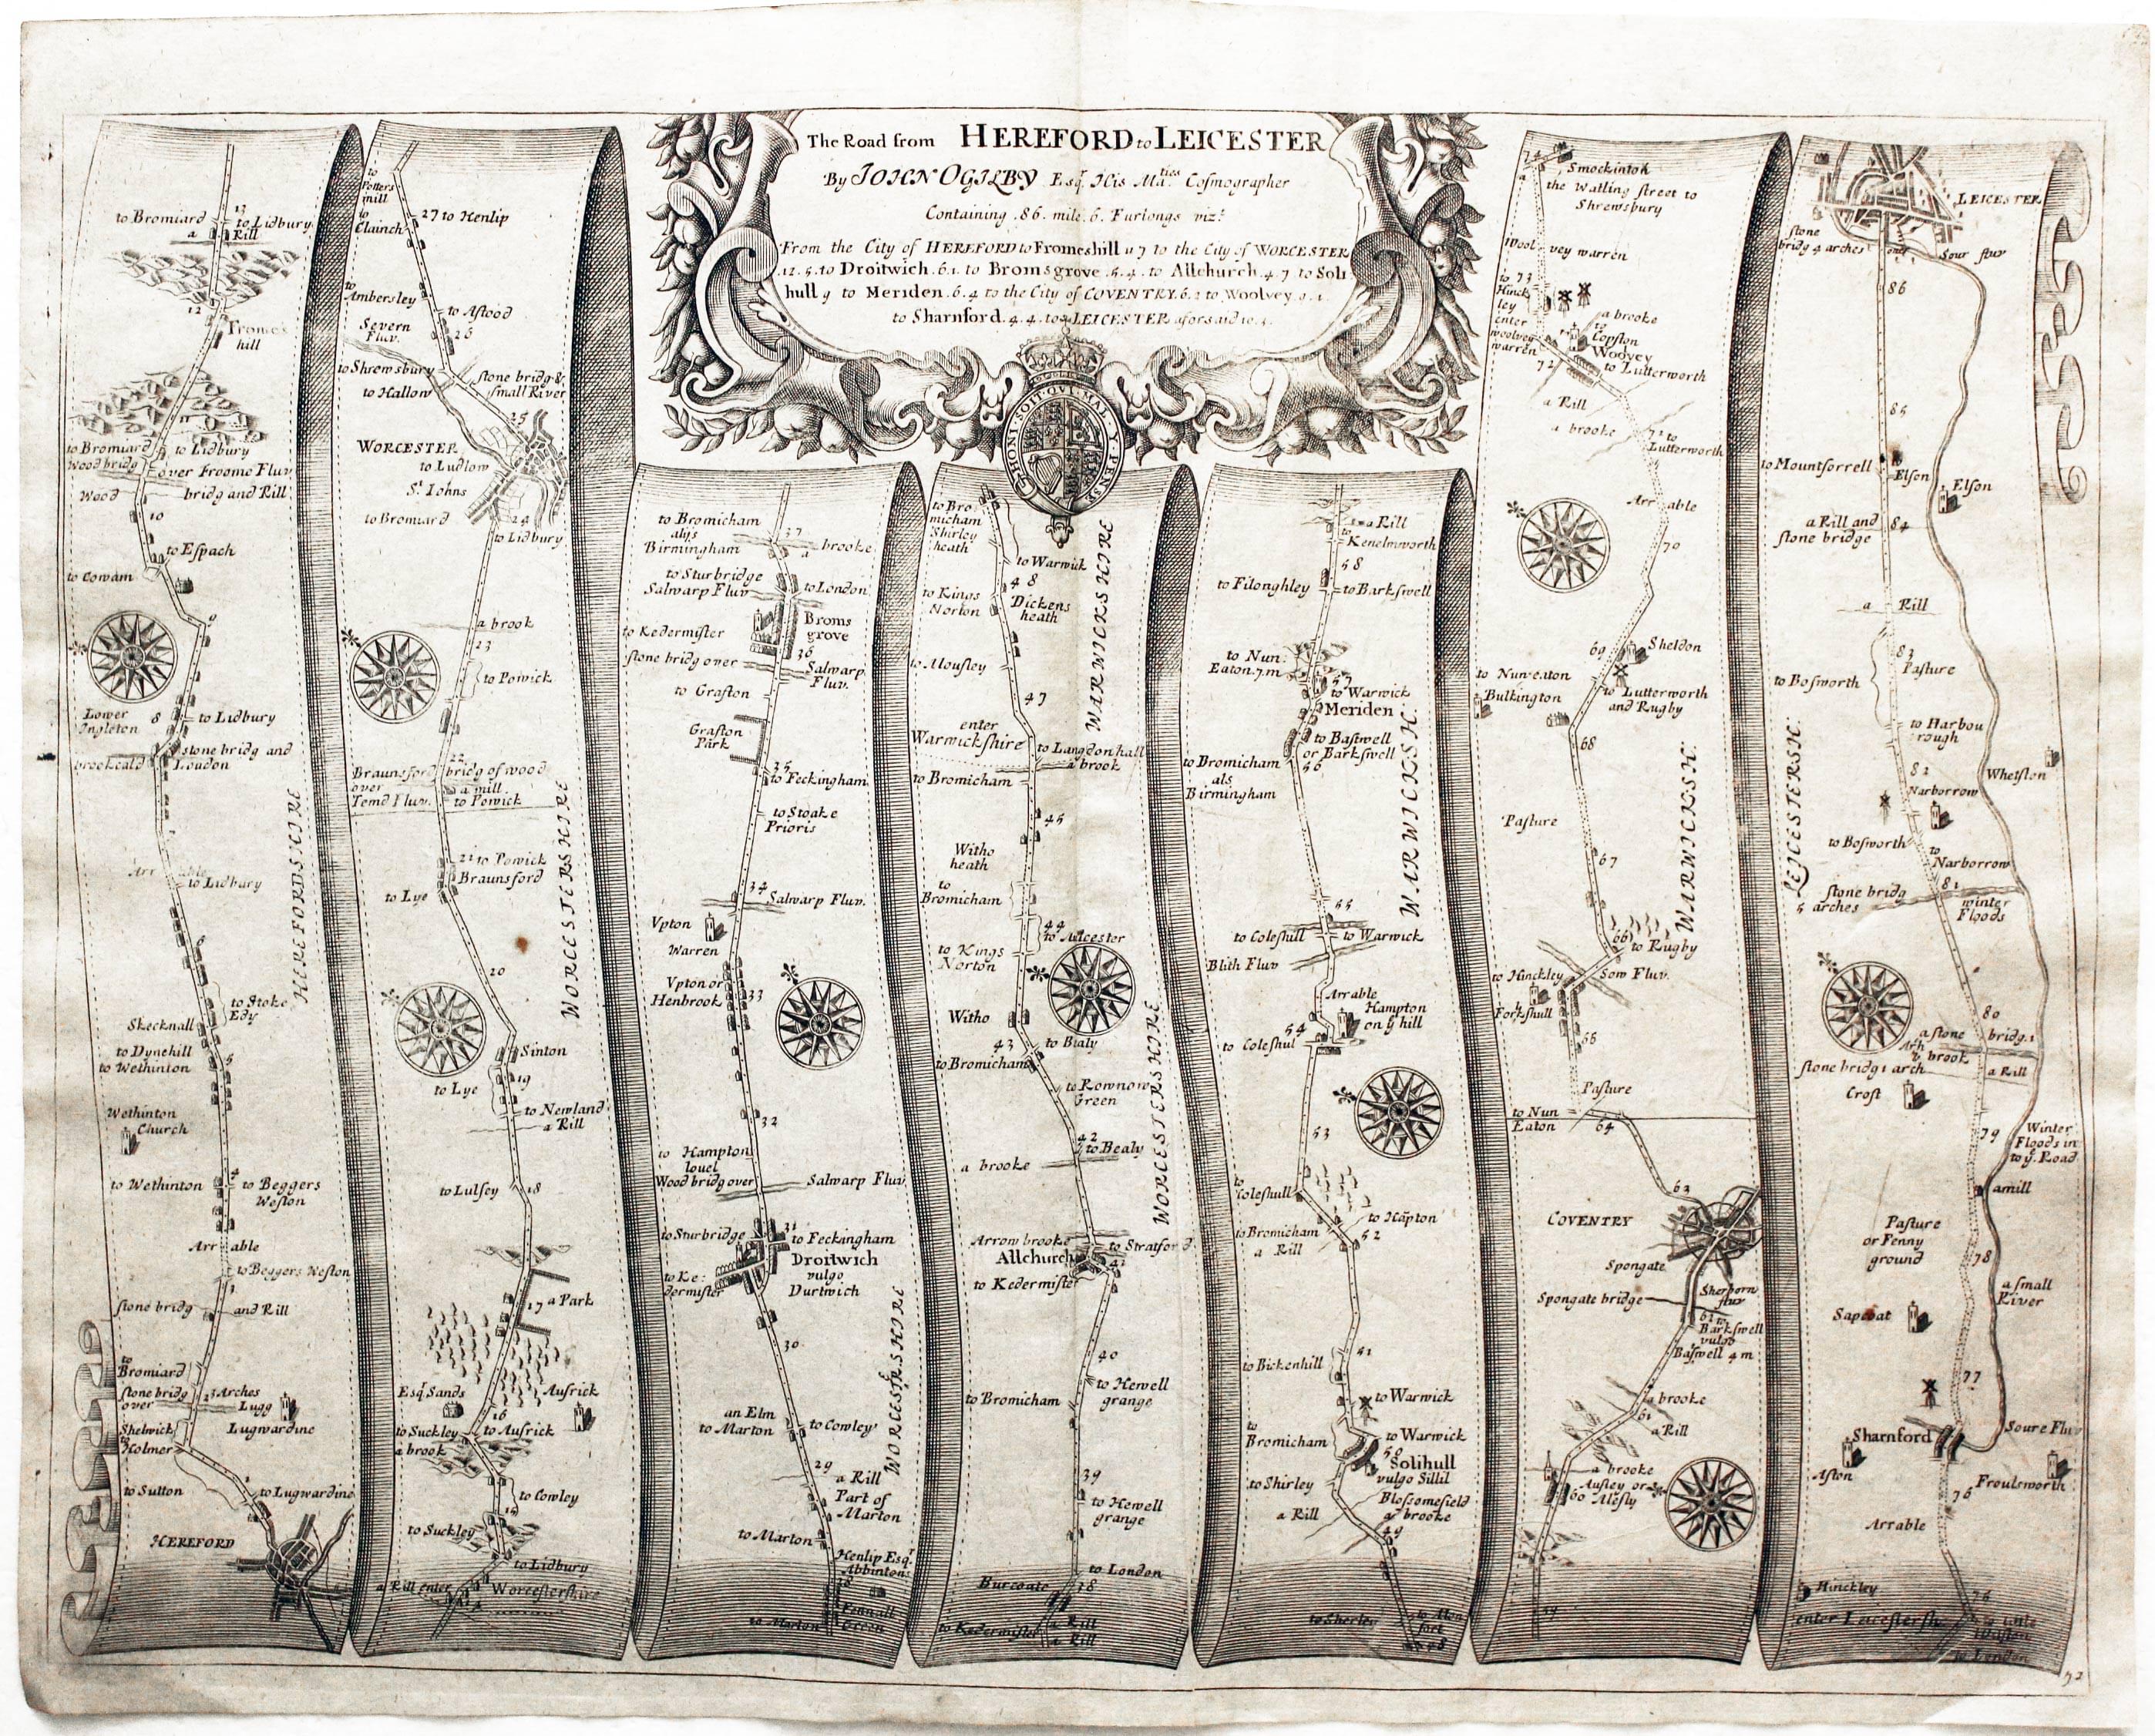 The Road from HEREFORD to LEICESTER
By JOHN OGILBY Esq.r His Ma.ties Cosmographer
Containing .86. mile .6. Furlongs viz.t
From the City of HEREFORD to Fromeshill 11 7 to the City of WORCESTER
.12.5. to Droitwich .6.1. to Bromsgrove .5.4. to Allchurch .4.7 to Soli
hull 9 to Meriden .6.4 to the City of COVENTRY .6.2 to Woolvey .9.1.
to Sharnford .4.4. to LEICESTER aforsaid 10.4.
HONI·SOIT·QVI·MAL·Y·PENSE
13
to Bromiard
to Lidbury
a Rill
12
Fromes
hill
11
to Bromiard
to Lidbury
Wood bridg
over Froome Fluv.
Wood
bridg and Rill
10
to Espach
to Cowarn
9
Lower
Ingleton
8
to Lidbury
stone bridg and
brook cald
Loudon
7
Arrable
to Lidbury
HEREFORDSHIRE
6
to Stoke
Edy
Skecknall
to Dynehill
5
to Wethinton
Wethinton
Church
4
to Wethinton
to Beggers
Weston
Arrable
to Beggers Weston
3
stone bridg
and Rill
to
Bromiard
stone bridg
over
3 Arches
Lugg
Lugwardine
Shelwick
to
Holmer
to Sutton
to Lugwardine
HEREFORD
to
Potters
mill
to
Clainch
27 to Henlip
to
Ambersley
to Astood
Severn
Fluv.
26
to Shrewsbury
stone bridg &
small River
to Hallow
25
WORCESTER
to Ludlow
St Iohns
to Bromiard
24
to Lidbury
a brook
23
to Powick
22
Braunsford
bridg of wood
over
a mill
Temd Fluv.
to Powick
21 to Powick
Braunsford
to Lye
WORCESTERSHIRE
20
Sinton
to Lye
19
to Newland
a Rill
to Lulsey
18
17 a Park
Esq.r Sands
Aufrick
16
to Suckley
to Aufrick
a brook
to Cowley
15
to Suckley
to Lidbury
a Rill enter
Worcestershire
37
to Bromicham
als
Birmingham
a brooke
to Sturbridge
Salwarp Fluv.
to London
Broms
grove
to Kedermister
36
stone bridg over
Salwarp
Fluv.
to Grafton
Grafton
Park
35
to Feckingham
to Stoake
Prioris
34
Salwarp Fluv.
Vpton
Warren
Vpton or
Henbrook
33
32
to Hampton
louel
Wood bridg over
Salwarp Fluv.
31
to Sturbridge
to Feckingham
Droitwich
vulgo
Durtwich
to Ke:
dermister
30
WORCESTRSHIRE
an Elm
to Marton
to Cowley
29
a Rill
Part of
Marton
to Marton
Henlip Esq.r
Abbintons
28
Fennall
Green
to Marton
to Bro
micham
Shirley
heath
to Warwick
48
to Kings
Norton
Dickens
heath
WARWICKSHIRE
to Mousley
47
enter
Warwickshire
to Langdon hall
a brook
to Bromicham
45
Witho
heath
to
Bromicham
44
to Alcester
to Kings
Norton
Witho
43
to Bialy
to Bromicham
to Rownow
Green
42
to Bealy
a brooke
WORCESTERSHIRE
Arrow brooke
to Stratford
Allchurch
41
to Kedermister
40
to Hewell
grange
to Bromicham
39
to Hewell
grange
to London
Burcoate
38
a Rill
to Kedermister
a Rill
a Rill
to
Kenelmworth
58
to Filonghley
to Barkswell
to Nun
Eaton.7.m
57
to Warwick
Meriden
to Baswell
or Barkswell
56
to Bromicham
als
Birmingham
WARWICKSH:
55
to Coleshill
to Warwick
Blith Fluv
Arrable
Hampton
on y hill
54
to Coleshul
53
to
Coleshull
to Hapton
to Bromicham
52
a Rill
51
to Bickenhill
to Warwick
to
Bromicham
to Warwick
50
Solihull
vulgo Sillil
to Shirley
Blossomefield
a brooke
a Rill
49
to Sherley
48
74
Smockinton
the Watling street to
Shrewsbury
Woolvey warren
to 73
Hinck
ley
enter
woolvey
warren
a brooke
to
Copston
Woovey
to Lutterworth
72
a Rill
a brooke
71 to
Lutterworth
Arrable
70
69
Sheldon
to Nuneaton
Bulkington
to Lutterworth
and Rugby
68
WARWICKSH:
Pasture
67
66
to Rugby
to Hinckley
Sow Fluv.
Forkshull
65
Pasture
to Nun
Eaton
64
63
COVENTRY
Spongate
Sherborn
fluv
Spongate bridge
62 to
Barkswell
vulgo
Baswell 4 m
a brooke
61
a Rill
a brooke
Ausley or
60 Alesly
59
LEICESTER
stone
bridg 4 arches
Sour fluv
86
85
to Mountsorrell
to
Elson
Elson
a Rill and
stone bridge
84
a Rill
83
Pasture
to Bosworth
to Harbou
rough
LEICESTERSH:
82
Whetston
Narborrow
to Bosworth
to
Narborrow
81
stone bridg
5 arches
winter
Floods
80
a stone
bridg.1
Arh
& brook
stone bridg 1 arch
a Rill
Croft
79
Winter
Floods in
to y Road
a mill
Pasture
or Fenny
ground
78
a small
River
Sapcoat
77
Sharnford
Soure Fluv
Aston
Froulsworth
76
Arrable
Hinckley
enter Leicestersh.
to London
72